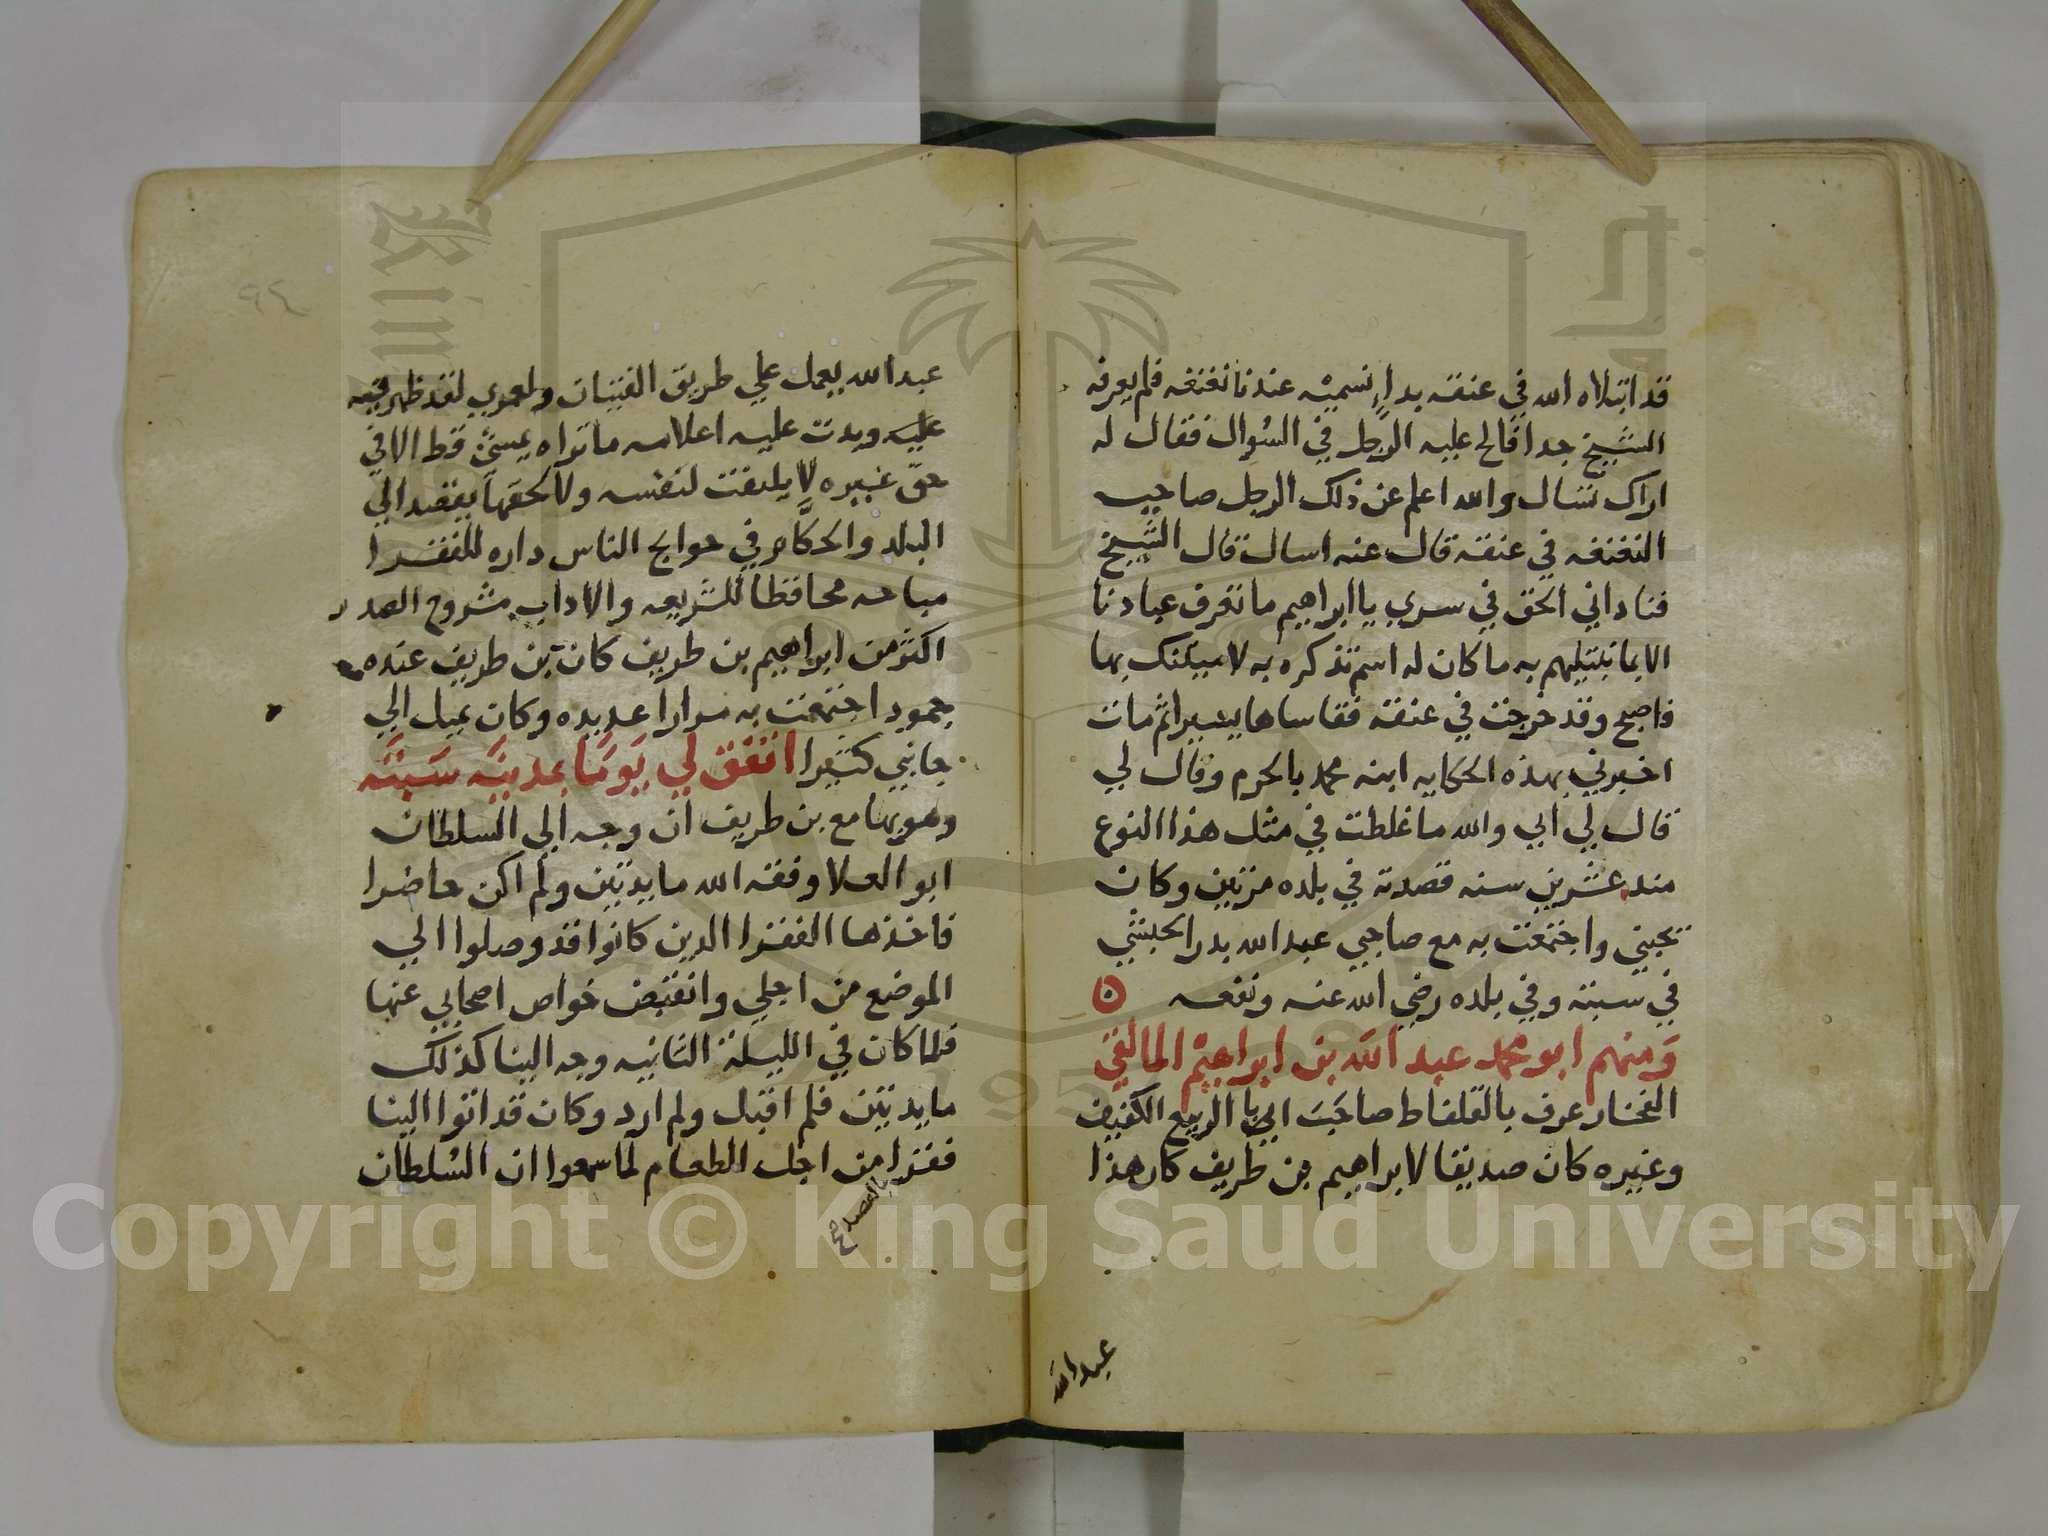 قد ابتلاه الله في عنقه بداء نسميه عندنا نغنغه فلم يعرفه
الشيخ جدا فالح عليه الرجل في السؤال فقال له
اراك تسال والله اعلم عن ذلك الرجل صاحب
النغنغه في عنقه قال عنه اسال قال الشيخ
فناداني الحق في سري يا ابراهيم ما تعرف عبادنا
الا بما نبتليهم به ما كان له اسم تذكره به لاميتنك بها
فاصبح وقد خرجت في عنقه فقاساها يسيرا ثم مات
اخبرني بهذه الحكايه ابنه محمد بالحرم وقال لي
قال لي ابي والله ما غلطت في مثل هذا النوع
منذ عشرين سنه قصدته في بلده مرتين وكان
يحبني واجتمعت به مع صاحبي عبد الله بدر الحبشي
في سبته وفي بلده رضي الله عنه ونفعه
ومنهم ابو محمد عبد الله بن ابراهيم المالقي
الفخار عرف بالقلفاط صاحب ابي الربيع الكفيف
وغيره كان صديقا لابراهيم بن طريف كان هذا
عبد الله
٩٤
عبد الله يعمل علي طريق الفتيان ولعمري لقد ظهر فيه
عليه وبدت عليه اعلامه ما تراه يمشي قط الا في
حق غيره لا يلتفت لنفسه ولا لحقها يقصد الي
البلد والحكام في حوايج الناس داره للفقرا
مباحه محافظا للشريعه والاداب مشروح الصدر
اكثر من ابراهيم بن طريف كان بن طريف عنده
جمود اجتمعت به مرارا عديده وكان يميل الي
جانبي كثيرا اتفق لي يوما بمدينه سبته
وهو بها مع بن طريف ان وجه الي السلطان
ابو العلا وفقه الله مايدتين ولم اكن حاضرا
فاخذها الفقرا الذين كانوا قد وصلوا الي
الموضع من اجلي وانقبض خواص اصحابي عنها
فلما كان في الليلة الثانيه وجه الينا كذلك
مايدتين فلم اقبل ولم ارد وكان قد اتوا الينا
فقرا من اجل الطعام لما سمعوا ان السلطان
Copyright © King Saud University